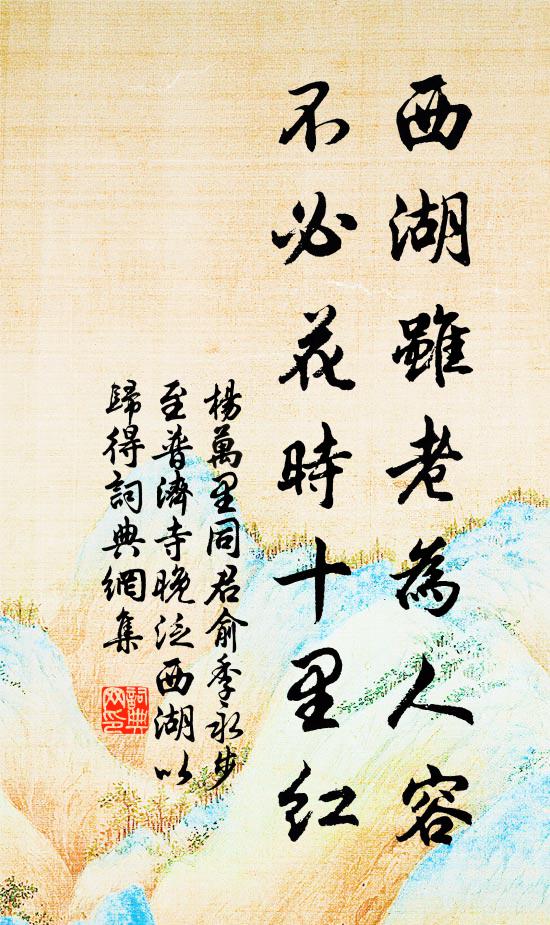 西湖雖老為人容
不必花時十里紅
楊萬里同君俞季永步
至普濟寺晚泛西湖以
歸得詞典網集
詞典
网印